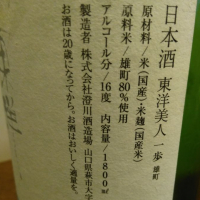 日本酒 東洋美人 一歩 雄町
原材料/米(国産)・米麹(国産米)
原料米/雄町80%使用
アルコール分/16度 内容量/1800
製造者 株式会社澄川酒造場 山口県萩市大字
お酒は20歳になってから。お酒はおいしく適量を。